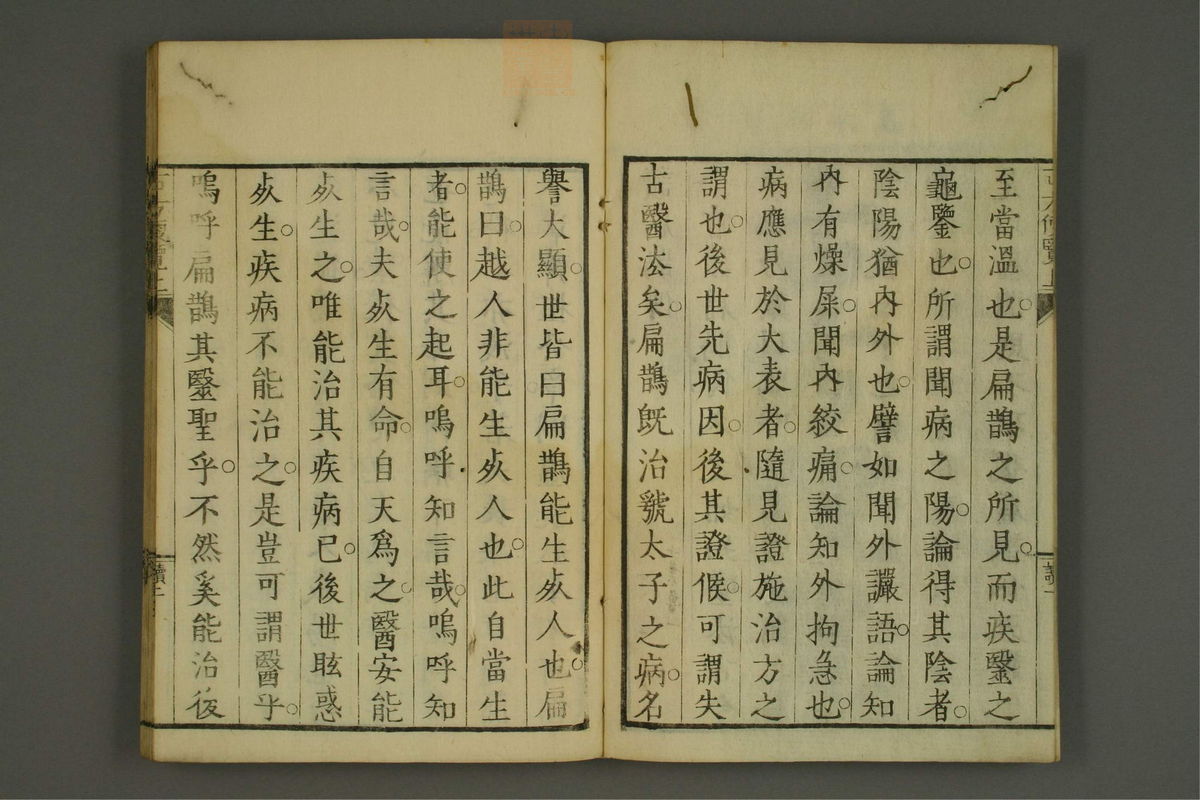 至當溫也是扁鵲之所見而疾毉之
龜鑒也所謂聞病之陽論得其陰者
陰陽猶內外也譬如聞外讝語論知
內有燥屎聞內絞痛論知外拘急也
病應見於大表者隨見證施治方之
謂也後世先病因後其證候可謂失
古醫法矣扁鵲旣治虢太子之病名
譽大顯世皆曰扁鵲能生死人也扁
鵲曰越人非能生死人也此自當生
者能使之起耳嗚呼知言哉嗚呼知
言哉夫死生有命自天爲之醫安能
死生之唯能治其疾病已後世眩惑
死生疾病不能治之是豈可謂醫乎
嗚呼扁鵲其毉聖乎不然奚能治後
讀一
讀二